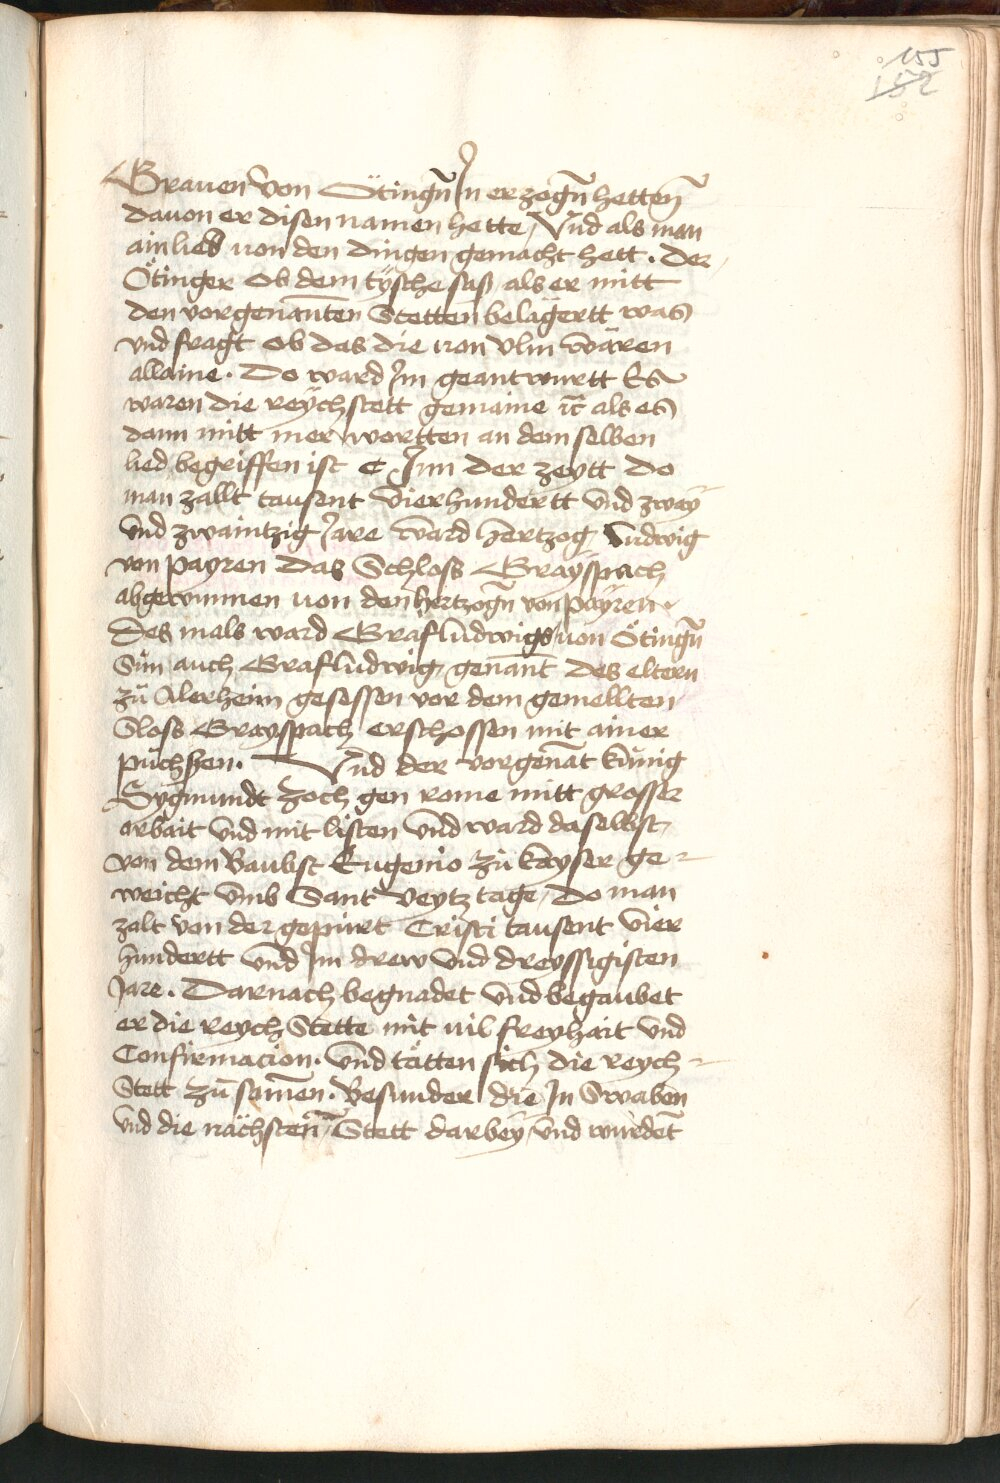 155
152
Grauen von Ötingn̄ Jn erzogn̄ hetten̄
dauon er disen namen hette / Vnd als man
ain lied von den dingen gemacht hett . der
Ötinger ob dem tÿsche sass als er mitt
den vorgenan̄ten Stetten belägertt was
vnd fragt ob das die von vlm wären
allaine . Do ward Jm geantwurtt Es
waren die reÿchstett gemaine ꝛc̄ als es
dann mitt mer wortten an dem selben
lied begriffen ist Jnn der zeytt do
man zallt tausent vierhundertt vnd zwaÿ
vnd zwaintzig Jare ward hertzog Ludwig
von payren das Schloss Graÿspach
abgewunnen von den hertzogn̄ von paÿren
Des mals ward Graf ludwigs von Ötingn̄
Sün auch Graf ludwig genan̄t des eltern
zu Alerheim gesessen vor dem gemellten
Sloss Grayspach erschossen mit ainer
püchsen . Vnd der vorgena͠t künig
Sÿgmundt zoch gen rome mitt grosser
arbait vnd mit listen vnd ward daselbst
von dem Baubst Eugenio zu kayser ge-
weicht vmb Sant veytz tage / do man
zalt von der gepürt Cristi tausent vier
hundertt vnd Jm drew vnd dreyssigisten
Jare . Darnach begnadet vnd begaubet
er die reych Stette mit uil freyhait vnd
Confirmacion . vnd tätten sich die reych-
Stett zu samen̄ . Besunder die Jn Swaben
vnd die nächsten Stett darbeÿ / vnd wurdet̄